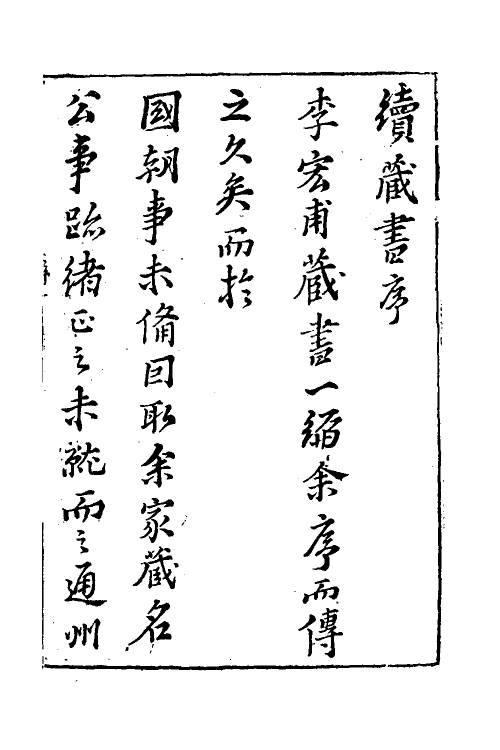 續藏書序
李宏甫藏書一編余序而傳
之久矣而於
國朝事未備因取余家藏名
公事蹟緒正之未就而之通州